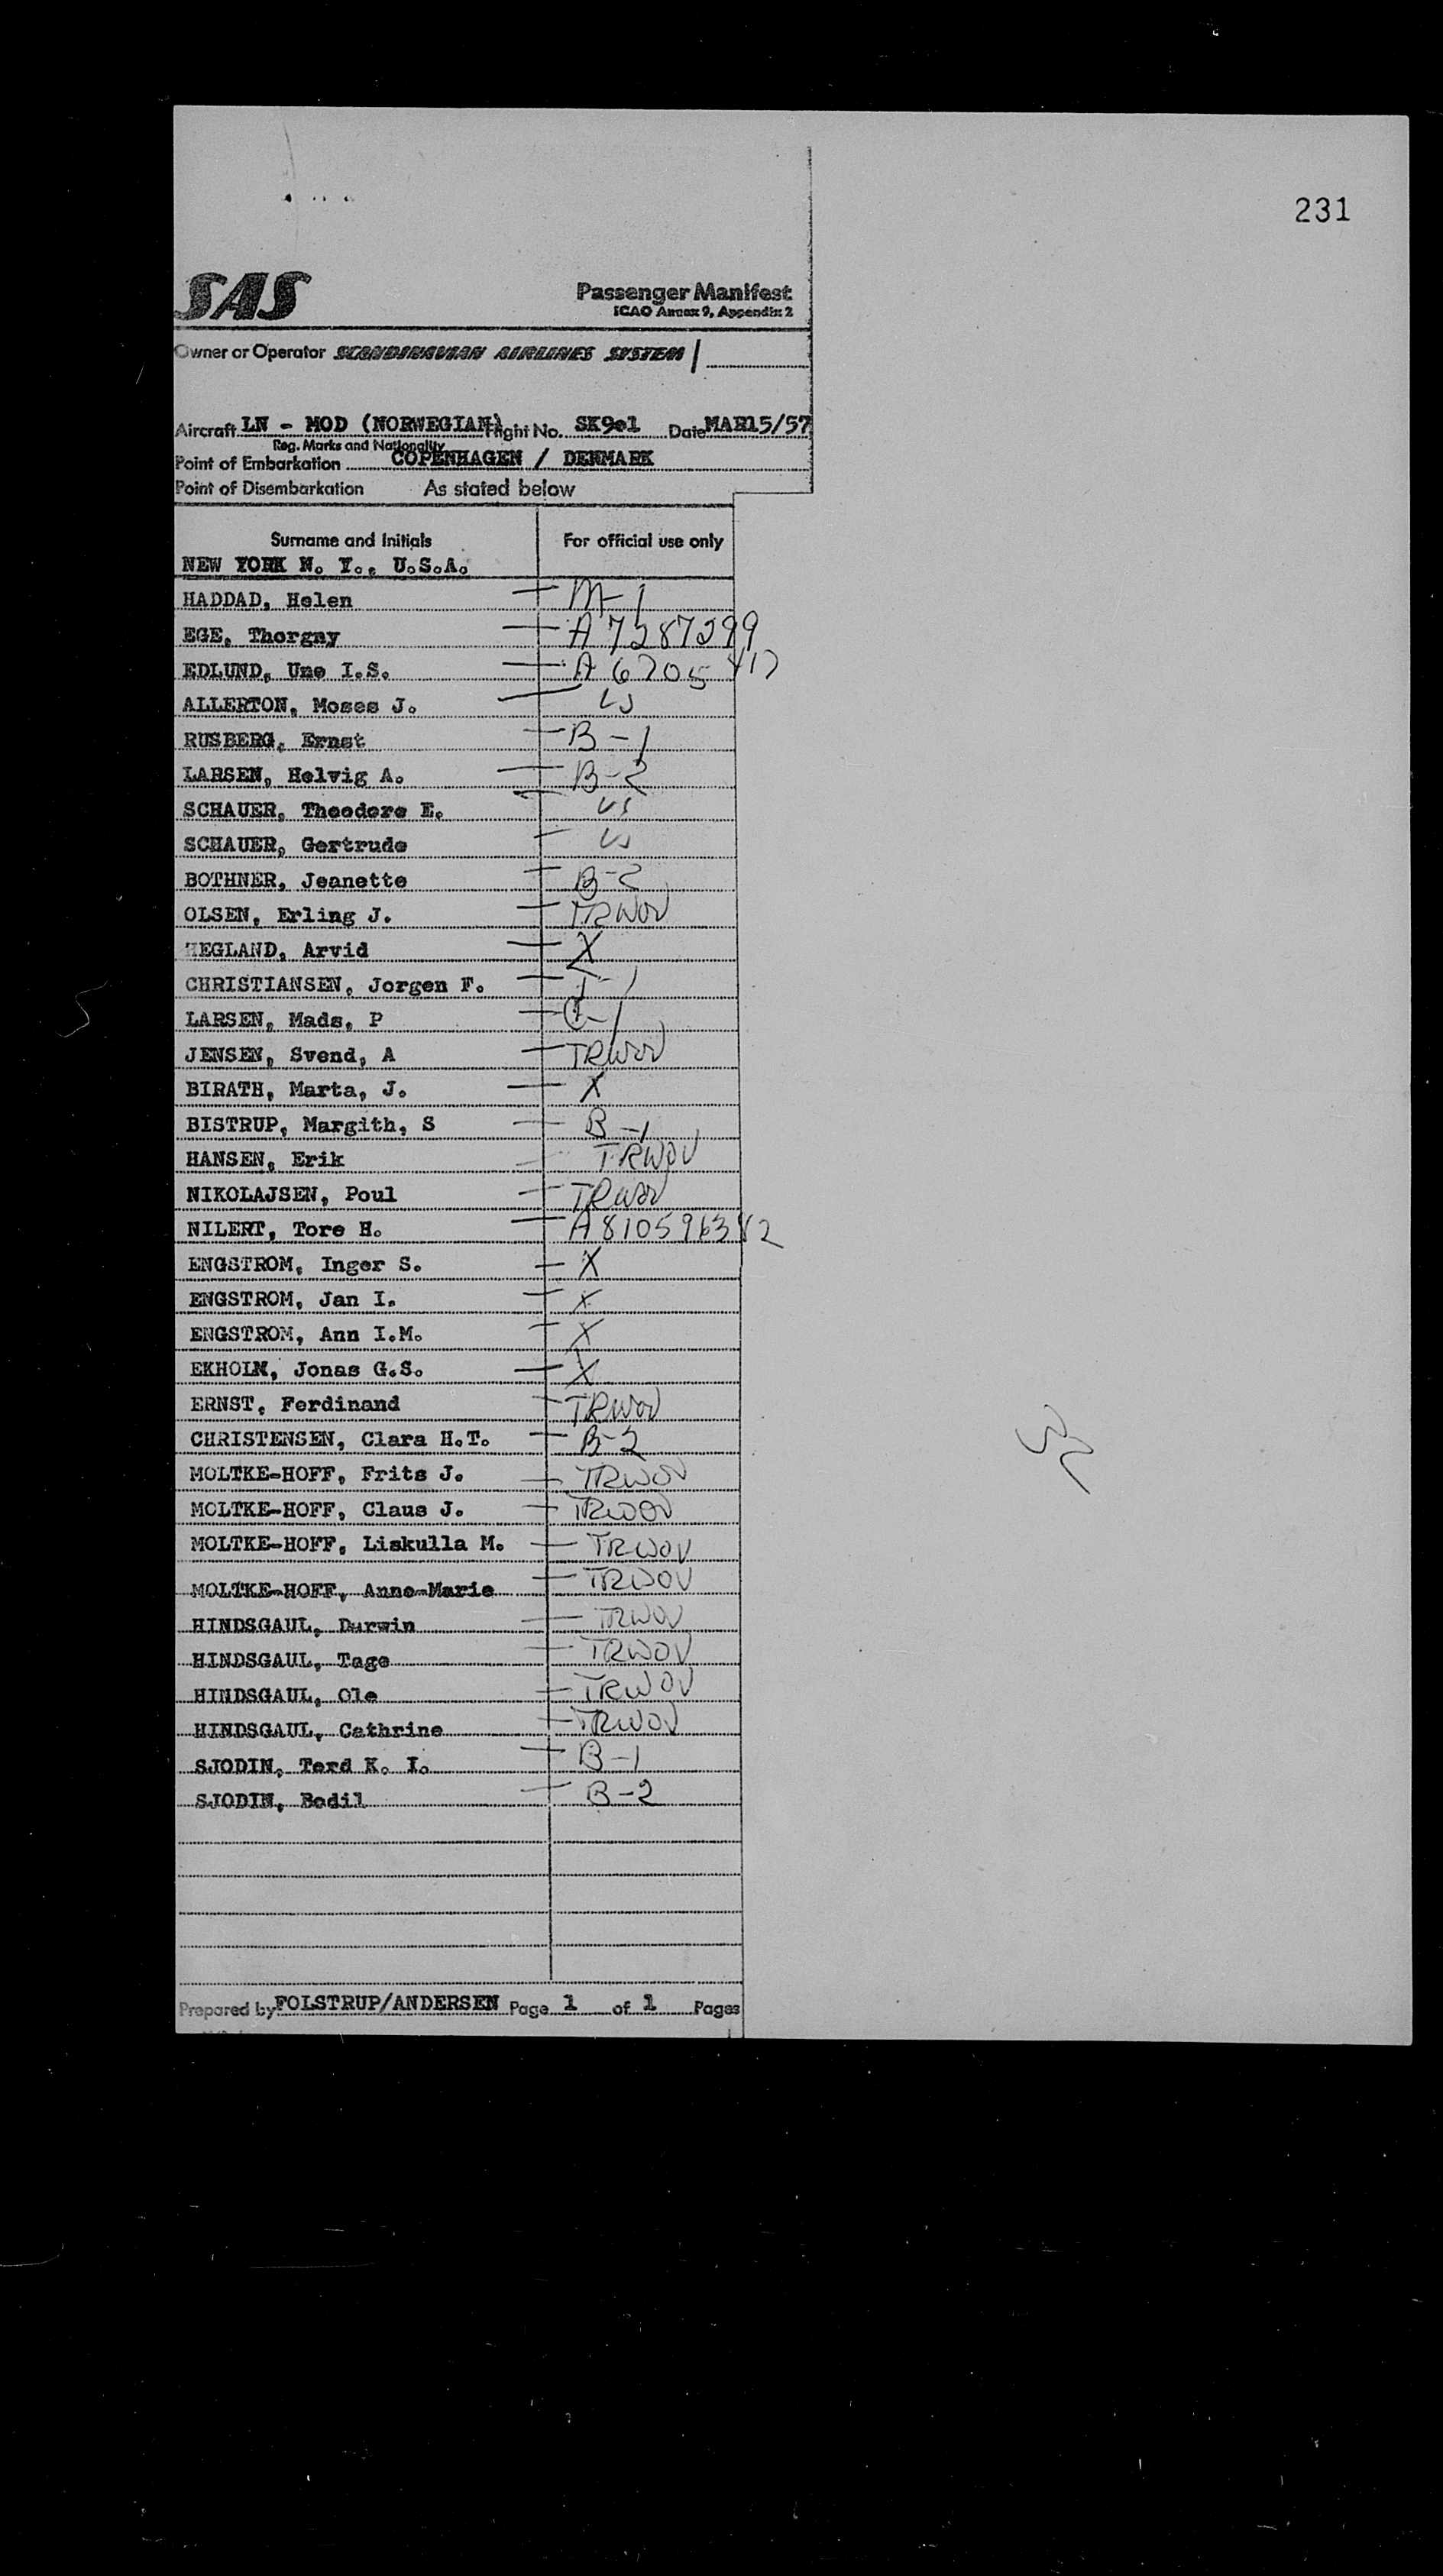 231
SAS
Passenger Manifest
ICAO Annex 9, Appendix 2
Owner or Operator SCANDINAVIAN AIRLINES SYSTEM
Aircraft LN - MOD (NORWEGIAN) Flight No. SK901 Date MAR15/57
Reg. Marks and Nationality
Point of Embarkation COPENHAGEN / DENMARK
Point of Disembarkation As stated below
Surname and Initials For official use only
NEW YORK N. Y., U.S.A.
HADDAD, Helen — M-1
EGE, Thorgny — A 7287299
EDLUND, Une I.S. — A 6705 417
ALLERTON, Moses J. — US
RUSBERG, Ernst — B-1
LARSEN, Helvig A. — B-2
SCHAUER, Theodore E. — US
SCHAUER, Gertrude — US
BOTHNER, Jeanette — B-2
OLSEN, Erling J. — TRWOV
HEGLAND, Arvid — X
CHRISTIANSEN, Jorgen F. —
LARSEN, Mads, P —
JENSEN, Svend, A — TRWOV
BIRATH, Marta, J. — X
BISTRUP, Margith, S — B-1
HANSEN, Erik — TRWOV
NIKOLAJSEN, Poul — TRWOV
NILERT, Tore H. —
ENGSTROM, Inger S. — X
ENGSTROM, Jan I. — X
ENGSTROM, Ann I.M. — X
EKHOLM, Jonas G.S. — X
ERNST, Ferdinand — TRWOV
CHRISTENSEN, Clara H.T. — B-2
MOLTKE-HOFF, Frits J. — TRWOV
MOLTKE-HOFF, Claus J. — TRWOV
MOLTKE-HOFF, Liskulla M. — TRWOV
MOLTKE-HOFF, Anne-Marie — TRWOV
HINDSGAUL, Darwin — TRWOV
HINDSGAUL, Tage — TRWOV
HINDSGAUL, Ole — TRWOV
HINDSGAUL, Cathrine — TRWOV
SJODIN, Terd K. I. — B-1
SJODIN, Bodil — B-2
Prepared by FOLSTRUP/ANDERSEN Page 1 of 1 Pages